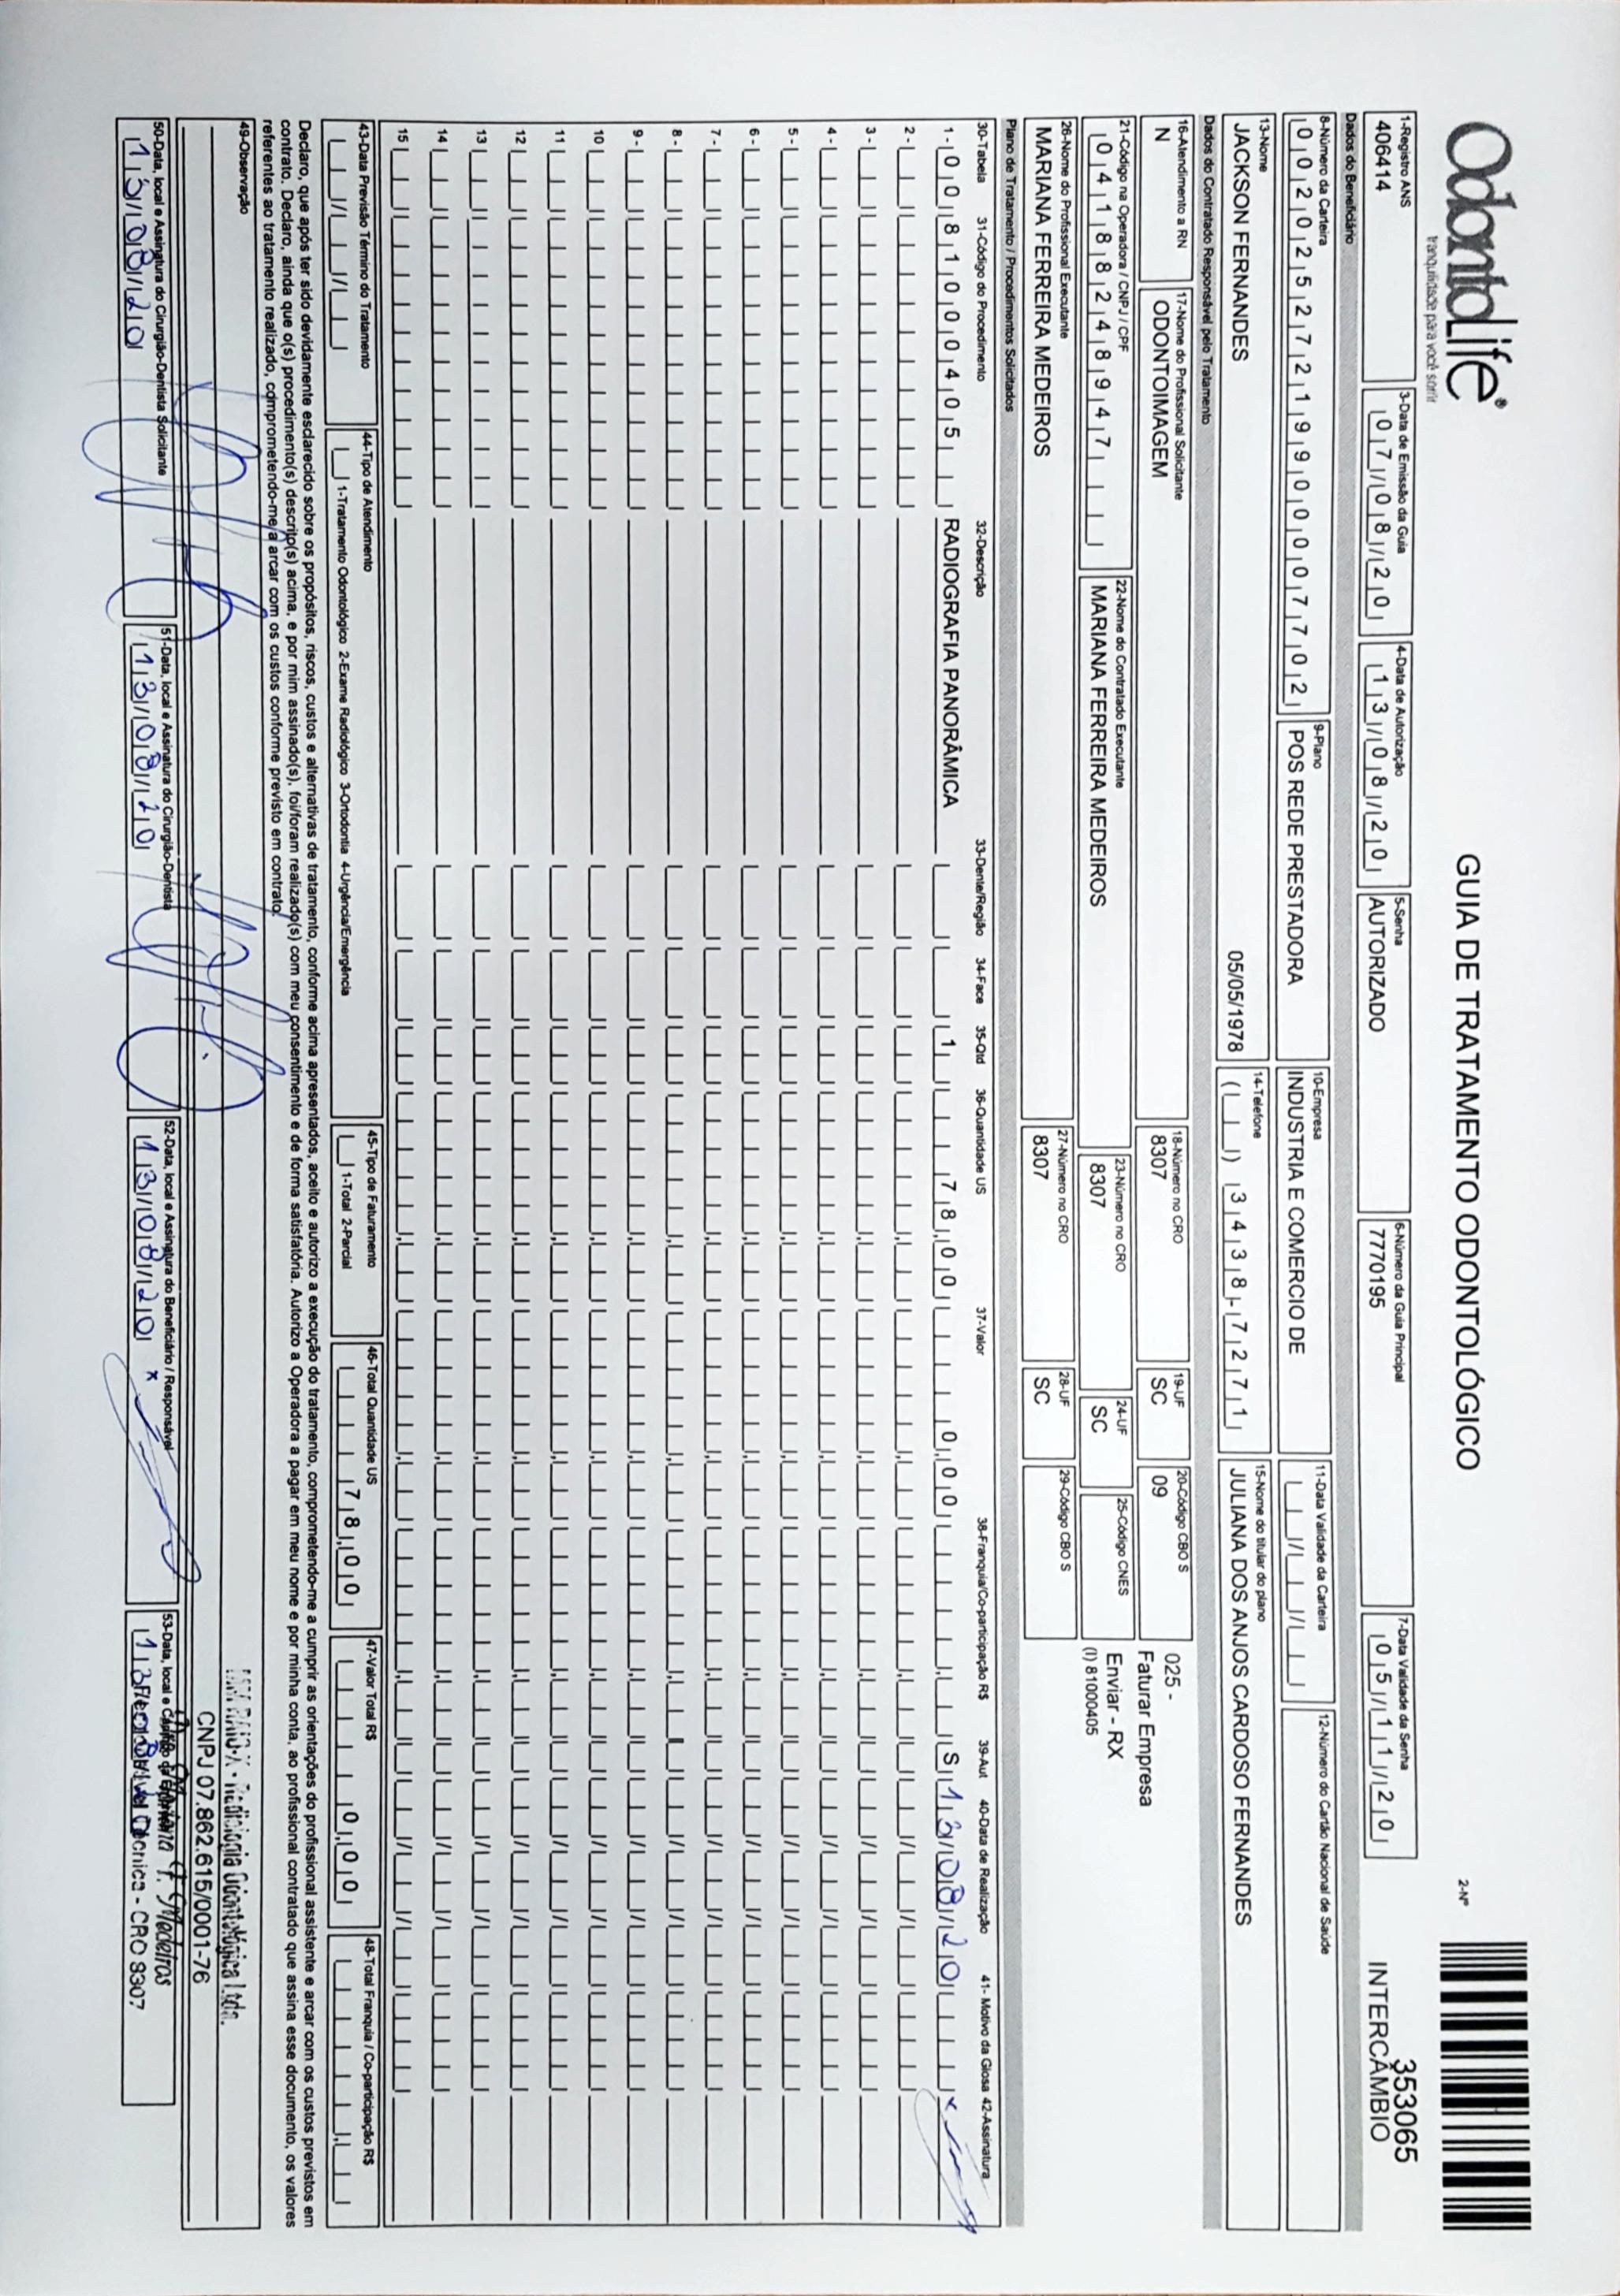 OdontoLife®
tranquilidade para você sorrir
GUIA DE TRATAMENTO ODONTOLÓGICO
2-Nº
353065
INTERCÂMBIO
1-Registro ANS
406414
3-Data de Emissão da Guia
07/08/20
4-Data de Autorização
13/08/20
5-Senha
AUTORIZADO
6-Número da Guia Principal
7770195
7-Data Validade da Senha
05/11/20
Dados do Beneficiário
8-Número da Carteira
00202527219900007702
9-Plano
POS REDE PRESTADORA
10-Empresa
INDUSTRIA E COMERCIO DE
11-Data Validade da Carteira
12-Número do Cartão Nacional de Saúde
13-Nome
JACKSON FERNANDES 05/05/1978
14-Telefone
( ) 3438-7271
15-Nome do titular do plano
JULIANA DOS ANJOS CARDOSO FERNANDES
Dados do Contratado Responsável pelo Tratamento
16-Atendimento a RN
N
17-Nome do Profissional Solicitante
ODONTOIMAGEM
18-Número no CRO
8307
19-UF
SC
20-Código CBO S
09
025 -
Faturar Empresa
21-Código na Operadora / CNPJ / CPF
04188248947
22-Nome do Contratado Executante
MARIANA FERREIRA MEDEIROS
23-Número no CRO
8307
24-UF
SC
25-Código CNES
Enviar - RX
(I) 81000405
26-Nome do Profissional Executante
MARIANA FERREIRA MEDEIROS
27-Número no CRO
8307
28-UF
SC
29-Código CBO S
Plano de Tratamento / Procedimentos Solicitados
30-Tabela 31-Código do Procedimento 32-Descrição 33-Dente/Região 34-Face 35-Qtd 36-Quantidade US 37-Valor 38-Franquia/Co-participação R$ 39-Aut 40-Data de Realização 41- Motivo da Glosa 42-Assinatura
1- 00 81000405 RADIOGRAFIA PANORÂMICA 1 78,00 0,00 S 13/08/20 x
2-
3-
4-
5-
6-
7-
8-
9-
10
11
12
13
14
15
43-Data Previsão Término do Tratamento
44-Tipo de Atendimento
1-Tratamento Odontológico 2-Exame Radiológico 3-Ortodontia 4-Urgência/Emergência
45-Tipo de Faturamento
1-Total 2-Parcial
46-Total Quantidade US
78,00
47-Valor Total R$
0,00
48-Total Franquia / Co-participação R$
Declaro, que após ter sido devidamente esclarecido sobre os propósitos, riscos, custos e alternativas de tratamento, conforme acima apresentados, aceito e autorizo a execução do tratamento, comprometendo-me a cumprir as orientações do profissional assistente e arcar com os custos previstos em
contrato. Declaro, ainda que o(s) procedimento(s) descrito(s) acima, e por mim assinado(s), foi/foram realizado(s) com meu consentimento e de forma satisfatória. Autorizo a Operadora a pagar em meu nome e por minha conta, ao profissional contratado que assina esse documento, os valores
referentes ao tratamento realizado, comprometendo-me a arcar com os custos conforme previsto em contrato.
49-Observação
Radiologia Odontológica Ltda.
CNPJ 07.862.615/0001-76
50-Data, local e Assinatura do Cirurgião-Dentista Solicitante
13/08/20
51-Data, local e Assinatura do Cirurgião-Dentista
13/08/20
52-Data, local e Assinatura do Beneficiário / Responsável
13/08/20 x
53-Data, local e Carimbo da Empresa
Mariana F. Medeiros
Técnica - CRO 8307